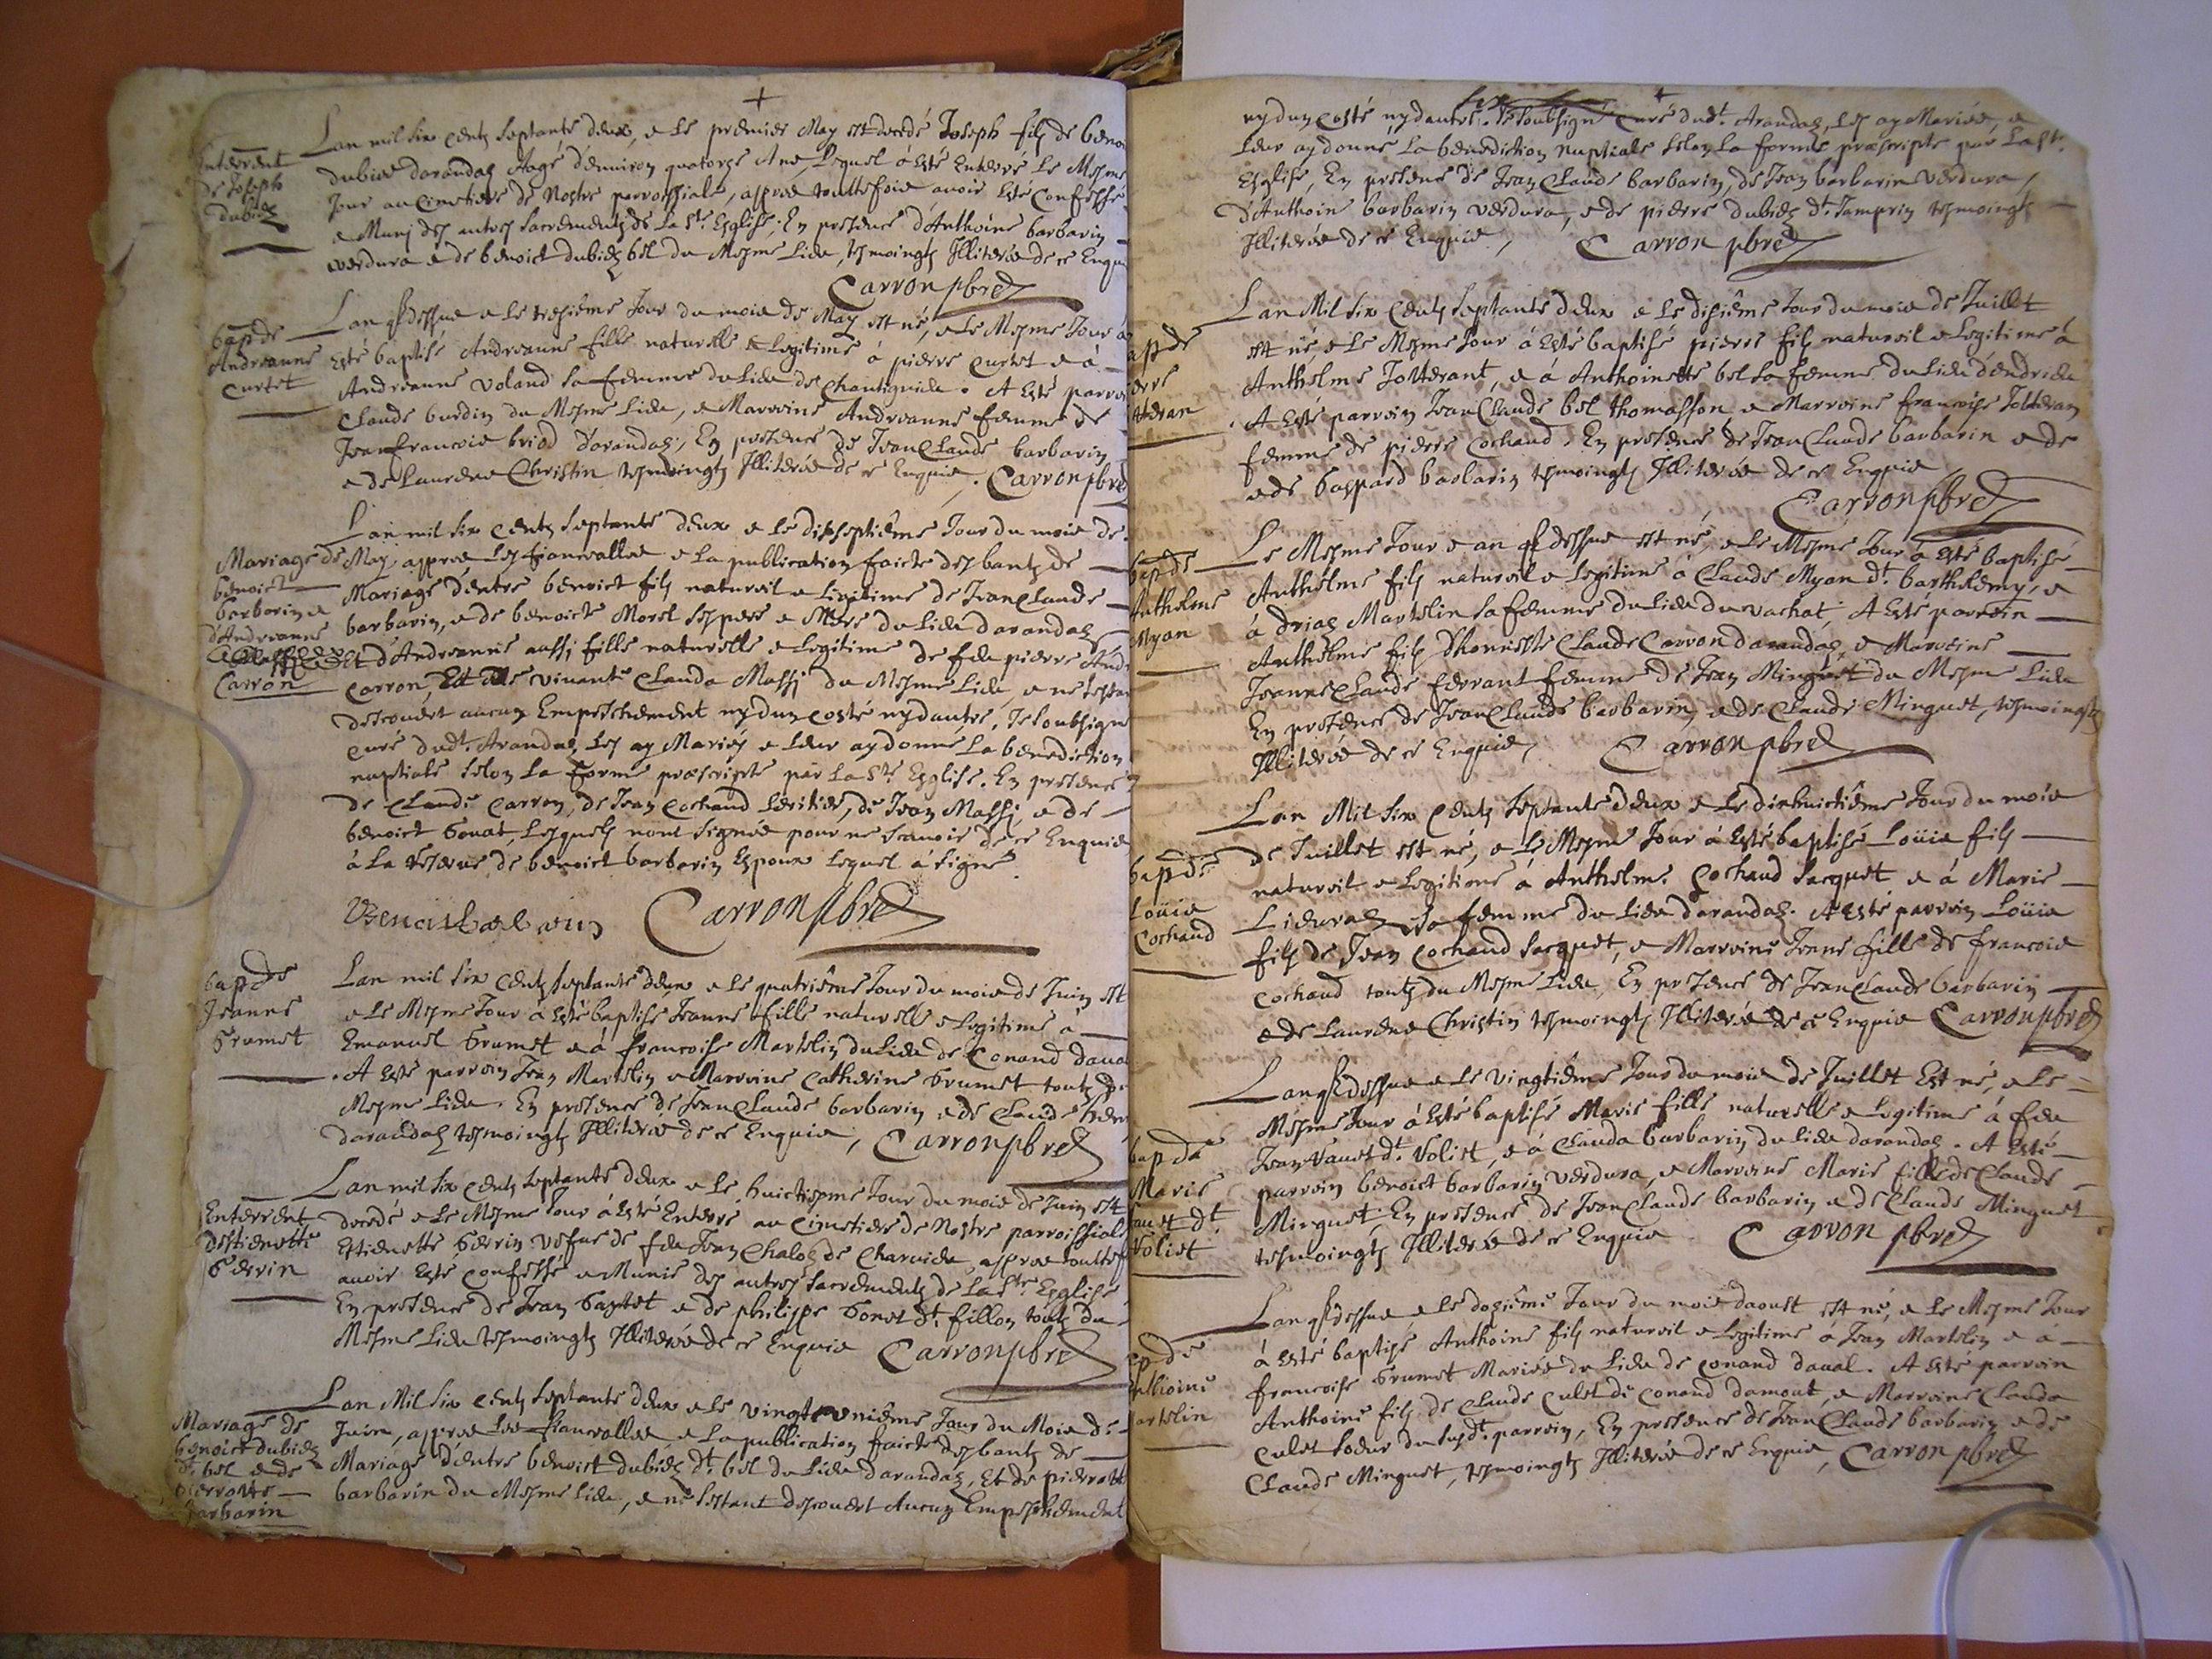 +
Enterrent
de Joseph
dubiez
Lan mil six centz septante deux, e le premier May est decedé Joseph filz de benoi
dubiez darandaz Aagé d'enuiron quatorze Ans, Lequel á Esté Enterré Le Mesme
Jour au Cimetiere de Nostre parrossiale, appres touttefois auoir Esté Confessé
e Munj des autres sacrementz de la Ste Esglise; En presence d'Anthoine barbarin
verdura e de benoict dubiez bel du Mesme Lieu, tesmoingtz Illiterés de ce Enqui
Carron pbre
bap de
Andreanne
Curtet
Lan q dessus e le tresiéme Jour du mois de May est né, e le Mesme Jour á
Esté baptisé Andreanne fille naturelle e Legitime á pierre Curtet e á
Andreanne Voland sa femme du Lieu de Chantiguieu. A Esté parr
Claude burdin du Mesme Lieu, e Marroine Andreanne femme de
Jean francois briod d'arandaz, En presence de Jean Claude barbarin
e de Laurens Christin tesmoingtz Illiterés de ce Enquis. Carron pbre
Mariage de
benoict
barbarin e
d'Andreanne
Carron
Lan mil six centz septante deux e le dixseptiéme Jour du mois de
May, appres les fiancallies e la publication faicte des bantz de
Mariage d'entre benoict filz naturel e Ligitime de Jean Claude
barbarin, e de benoicte Morel ses pere e Mere du Lieu darandaz
Et d'Andreanne aussj fille naturelle e Legitime de feu pierre
Carron, Et de viuante Clauda Massj du Mesme Lieu, e ne s'estan
descouuert aucun Empeschement ny dun costé ny dautre, Je soubsigne
curé dudt. Arandaz les ay Mariés e Leur ay donné la benediction
nuptiale selon la forme præscripte par la Ste Esglise. En presence
de Claude Carron, de Jean Cochand heritier, de Jean Massj, e de
benoict Gonat, Lesquelz nont signés pour ne scauoir de ce Enquis
á La reserue de benoict barbarin Espoux Lequel á signé.
Benoist barbarin Carron pbre
bap de
Jeanne
Grumet
Lan mil six centz septante deux e le quatriéme Jour du mois de Juin est
e le Mesme Jour á Esté baptisé Jeanne fille naturelle e Legitime á
Emanuel Grumet e á francoise Martelin du Lieu de Conand daua
. A Esté parroin Jean Martelin e Marroine Catherine Grumet toutz du
Mesme Lieu. En presence de Jean Claude barbarin e de Claude
darandaz tesmoingtz Illiterés de ce Enquis, Carron pbre
Enterrent
destienette
Gerrin
Lan mil six centz septante deux e le huictiesme Jour du mois de Juin est
decedé e le Mesme Jour á Esté Enterré au Cimetiere de Nostre parroissiale
Estienette Gerrin vefue de feu Jean Chaloz de Charuieu, appres touttef
auoir Esté confessé e Munie des autres sacrementz de la Ste Esglise
En presence de Jean Gaytet e de philippe Gonet dt. fillon toutz du
Mesme Lieu tesmoingtz Illiterés de ce Enquis Carron pbre
Mariage de
benoict dubiez
dt. bel e de
pierrotte
barbarin
Lan Mil six centz septante deux e le vingt e vniéme Jour du Mois de
Juin, appres les fiancallies e la publication faicte des bantz de
Mariage d'entre benoict dubiez dt. bel du Lieu darandaz, Et de pierrott
barbarin du Mesme Lieu, e ne sestant descouuert Aucun Empeschement
ny dun costé ny dautre. Je soubsigné curé dudt. Arandaz, Les ay Mariés, e
Leur ay donné La benediction nuptiale selon La forme præscripte par La Ste.
Esglise, En presence de Jean Claude barbarin, de Jean barbarin verdura,
d'Anthoine barbarin verdura, e de pierre dubiez dt. Jamprin tesmoingtz
Illiterés de ce Enquis, Carron pbre
ap de
ierre
tteran
Lan Mil six centz septante deux e le disiéme Jour du mois de Juillet
est né e le Mesme Jour á Esté baptisé pierre filz naturel e Legitime á
Anthelme Jotterant, e á Anthoinette bel sa femme du Lieu d'endrieu
. A Esté parroin Jean Claude bel thomasson e Marroine francoise Jotteran
femme de pierre Cochand. En presence de Jean Claude barbarin e de
e de Gaspard barbarin tesmoingtz Illiterés de ce Enquis
Carron pbre
bap de
Anthelme
Myan
Le Mesme Jour e an q dessus est né, e le Mesme Jour á Esté baptisé
Anthelme filz naturel e Legitime á Claude Myan dt. barthelemy, e
á driaz Martelin sa femme du Lieu du vachat, A Esté parroin
Anthelme filz d'honneste Claude Carron darandaz, e Marroine
Jeanne Claude ferrant femme de Jean Minguet du Mesme Lieu
En presence de Jean Claude barbarin, e de Claude Minguet, tesmoingtz
Illiterés de ce Enquis, Carron pbre
bap de
Loüis
Cochand
Lan Mil six centz septante deux e le dixhuictiéme Jour du mois
de Juillet est né, e le Mesme Jour á Esté baptisé Loüis filz
naturel e Legitime á Anthelme Cochand Jacquet e á Marie
Lieuraz sa femme du Lieu darandaz. A Esté parroin Loüis
filz de Jean Cochand Jacquet, e Marroine Jeanne fille de francois
Cochand toutz du Mesme Lieu, En presence de Jean Claude barbarin
e de Laurens Christin tesmoingtz Illiterés de ce Enquis Carron pbre
bap de
Marie
dt.
Voliet
Lan q dessus e le vingtiéme Jour du mois de Juillet Est né, e le
Mesme Jour á Esté baptisé Marie fille naturelle e Legitime á feu
Jean Vauet dt. Voliet, e á Clauda barbarin du Lieu darandaz. A Esté
parroin benoict barbarin verdura, e Marroine Marie fille de Claude
Minguet, En presence de Jean Claude barbarin e de Claude Minguet
tesmoingtz Illiterés de ce Enquis Carron pbre
ap de
nthoine
artelin
Lan q dessus, e le doziéme Jour du mois daoust est né, e le Mesme Jour
á Esté baptisé Anthoine filz naturel e Legitime á Jean Martelin e á
francoise Grumet Mariés du Lieu de conand daual. A Esté parroin
Anthoine filz de Claude Culet de conand damont, e Marroine Clauda
Culet soeur du susdt. parroin, En presence de Jean Claude barbarin e de
Claude Minguet, tesmoingtz Illiterés de ce Enquis, Carron pbre